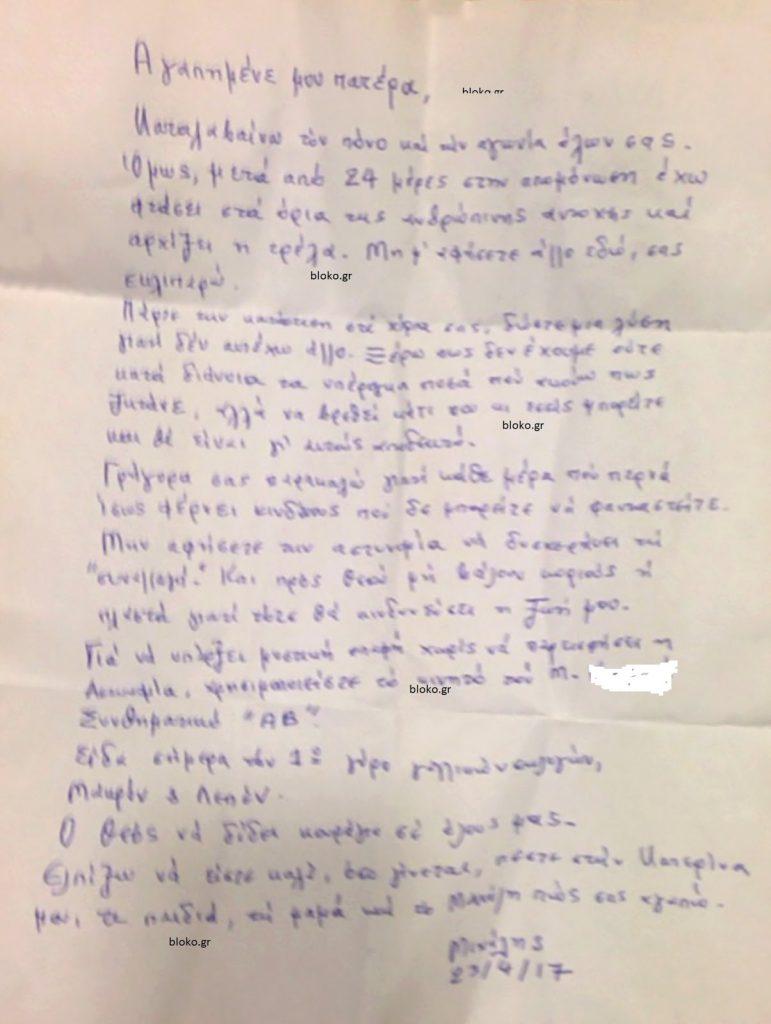 Αγαπημένε μου πατέρα,
bloko.gr
Καταλαβαίνω τον πόνο καί την αγωνία όλων σας.
Όμως, μετά από 24 μέρες στην απομόνωση έχω
φτάσει στά όρια της ανθρώπινης αντοχής καί
αρχίζει η τρέλα. Μη μ' αφήσετε άλλο εδώ, σας
bloko.gr
εκλιπαρώ.
Πάρτε την κατάσταση στά χέρια σας, δώστε μια λύση
γιατί δέν αντέχω άλλο. Ξέρω πως δεν έχουμε ούτε
κατά διάνοια τα υπέρογκα ποσά πού πως
ζητάνε, αλλά να βρεθεί κάτι που κι εσείς μπορείτε
bloko.gr
και θά είναι γι' αυτούς αποδεκτό.
Γρήγορα σας παρακαλώ γιατί κάθε μέρα πού περνά
ίσως φέρνει κινδύνους πού δε μπορείτε νά φανταστείτε.
Μην αφήσετε την αστυνομία νά δυσχεράνει τη
"συναλλαγή." Και πρός Θεού μή βάλουν κοριούς ή
πλαστά γιατί τότε θά κινδυνεύσει η ζωή μου.
Γιά νά υπάρξει μυστική επαφή χωρίς νά η
Αστυνομία, χρησιμοποιείστε τό κινητό τού Μ.
bloko.gr
Συνθηματικό "ΑΒ".
Είδα σήμερα τον 1ο γύρο γαλλικών εκλογών,
Μακρόν & Λεπέν.
Ο Θεός νά δίδει κουράγιο σέ όλους μας.
Ελπίζω νά είστε καλά, όσο γίνεται, πέστε στήν Κατερίνα
μου, τα παιδιά, τη μαμά καί το Μανώλη πώς σας αγαπώ.
bloko.gr
Μιχάλης
23/4/17